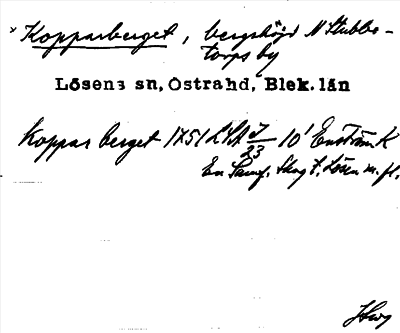 Kopparberget, bergshöjd N Stubbe-
torps by
Lösens sn, Östrahd, Blek. län
Koppar berget 1751 LSA J/23 10' Enström K
En Saml. Skog t. Lösen m. fl.